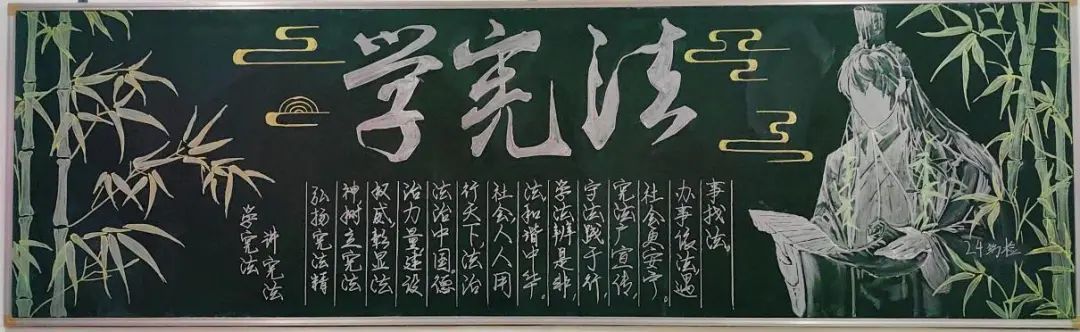 学宪法
学宪法
讲宪法
弘扬宪法精
神树立宪法
权威彰显法
治力量建设
法治中国。德
行天下,法治
社会。人人用
法和谐中华。
学法辨是非,
守法践于行,
宪法广宣传,
社会更安宁。
办事依法遇
事找法